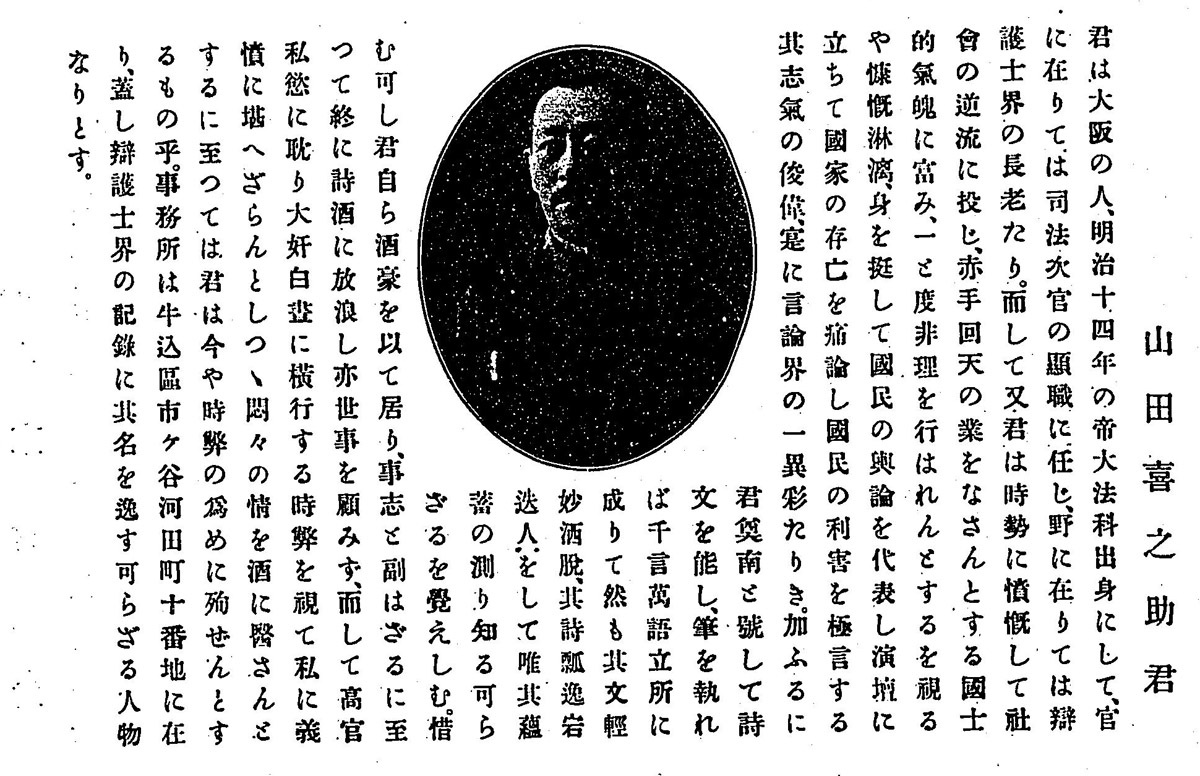 山田喜之助君
君は大阪の人、明治十四年の帝大法科出身にして、官
に在りては司法次官の顯職に任じ、野に在りては辯
護士界の長老たり。而して又君は時勢に憤慨して社
會の逆流に投じ、赤手回天の業をなさんとする國士
的氣魄に富み、一と度非理を行はれんとするを視る
や慷慨淋漓、身を挺して國民の輿論を代表し演壇に
立ちて國家の存亡を痛論し國民の利害を極言する
其志氣の俊偉、寔に言論界の一異彩たりき。加ふるに
君奠南と號して詩
文を能し、筆を執れ
ば千言萬語立所に
成りて然も其文輕
妙洒脫、其詩瓢逸宕
迭人をして唯其蘊
蓄の測り知る可ら
ざるを覺えしむ。惜
む可し君自ら酒豪を以て居り、事志と副はざるに至
つて終に詩酒に放浪し亦世事を顧みず、而して高官
私慾に耽り大奸白晝に橫行する時弊を視て私に義
憤に堪へざらんとしつゝ悶々の情を酒に醫さんと
するに至つては君は今や時弊の爲めに殉せんとす
るもの乎。事務所は牛込區市ケ谷河田町十番地に在
り、蓋し辯護士界の記錄に其名を逸す可らざる人物
なりとす。